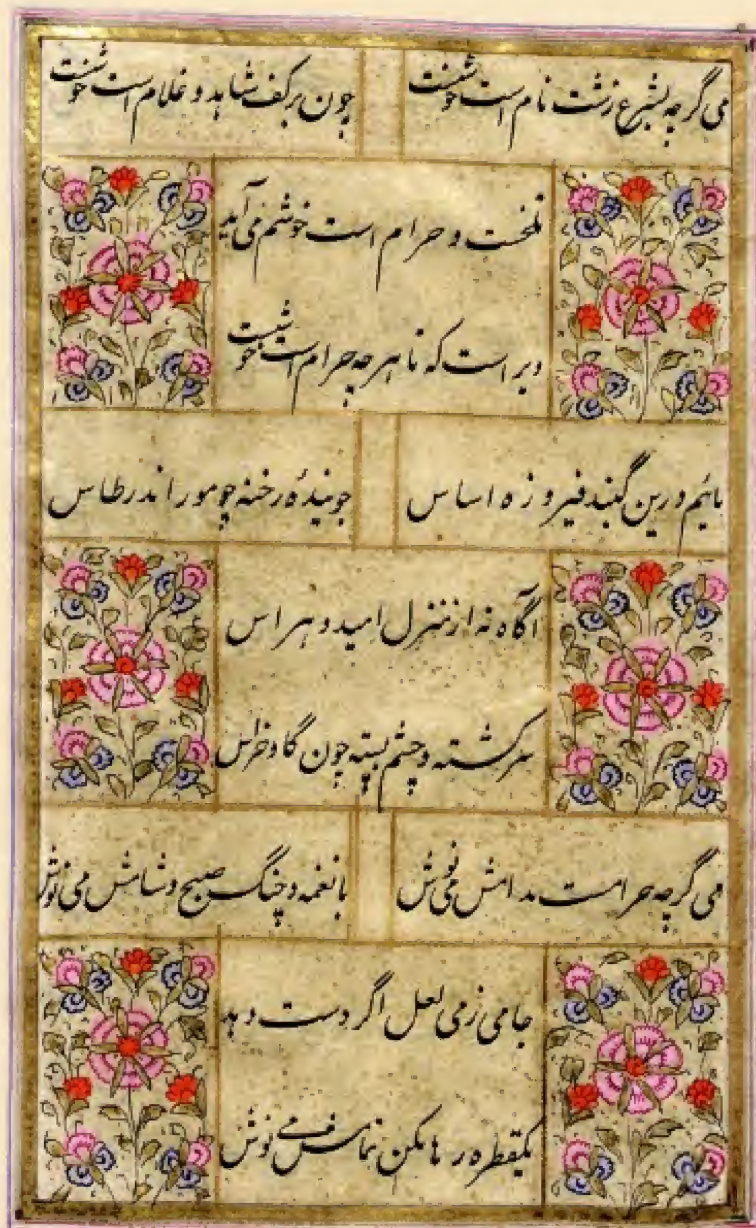 می گرچه بشرع زشت نام است خوشست چون بر کف شاهد و غلام است خوشست
تلخست و حرام است خوشم می آید
دیر است که تا هر چه حرام است خوشست
مائیم درین گنبد فیروزه اساس جوینده رخنه چو مور اندر طاس
آگاه نه از منزل امید و هراس
سرگشته و چشم بسته چون گاو خراس
می گرچه حرامست مدامش می نوش با نغمه و چنگ صبح و شامش می نوش
جامی ز می لعل اگر دست دهد
یکقطره رها مکن تمامش می نوش